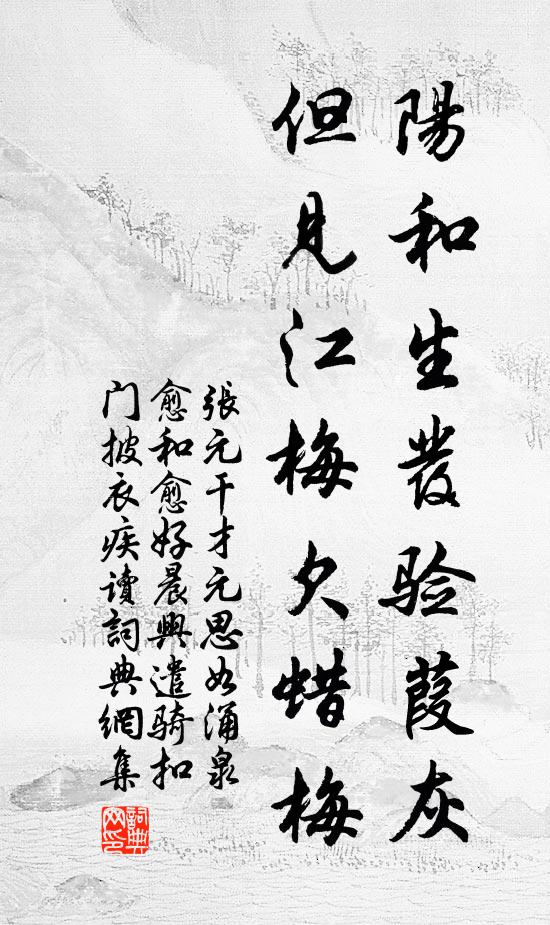 陽和生發验葭灰
但見江梅欠蜡梅
張元干才元思如涌泉
愈和愈好晨興遣騎扣
门披衣疾讀詞典網集
詞典网印